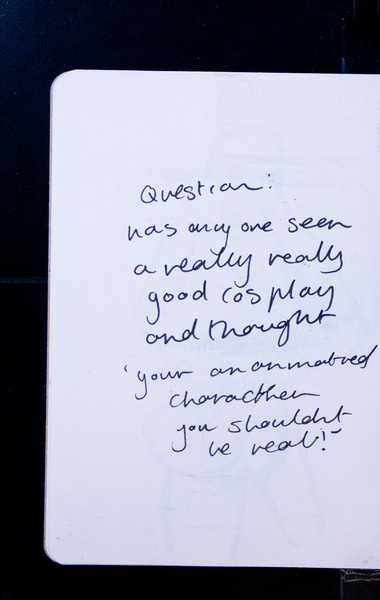 Question:
has any one seen
a really really
good cosplay
and thought
'your an anmatred
characther
you shouldnt
be real!'